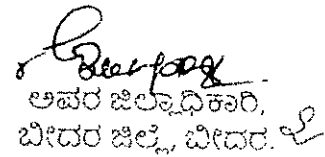 ಅಪರ ಜಿಲ್ಲಾಧಿಕಾರಿ,
ಬೀದರ ಜಿಲ್ಲೆ, ಬೀದರ.